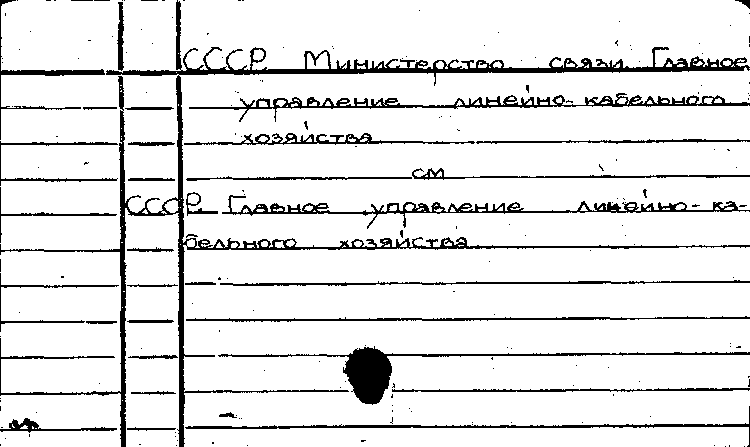 СССР. Министерство связи. Главное
управление линейно-кабельного
хозяйства
см
СССР. Главное управление линейно-ка-
бельного хозяйства